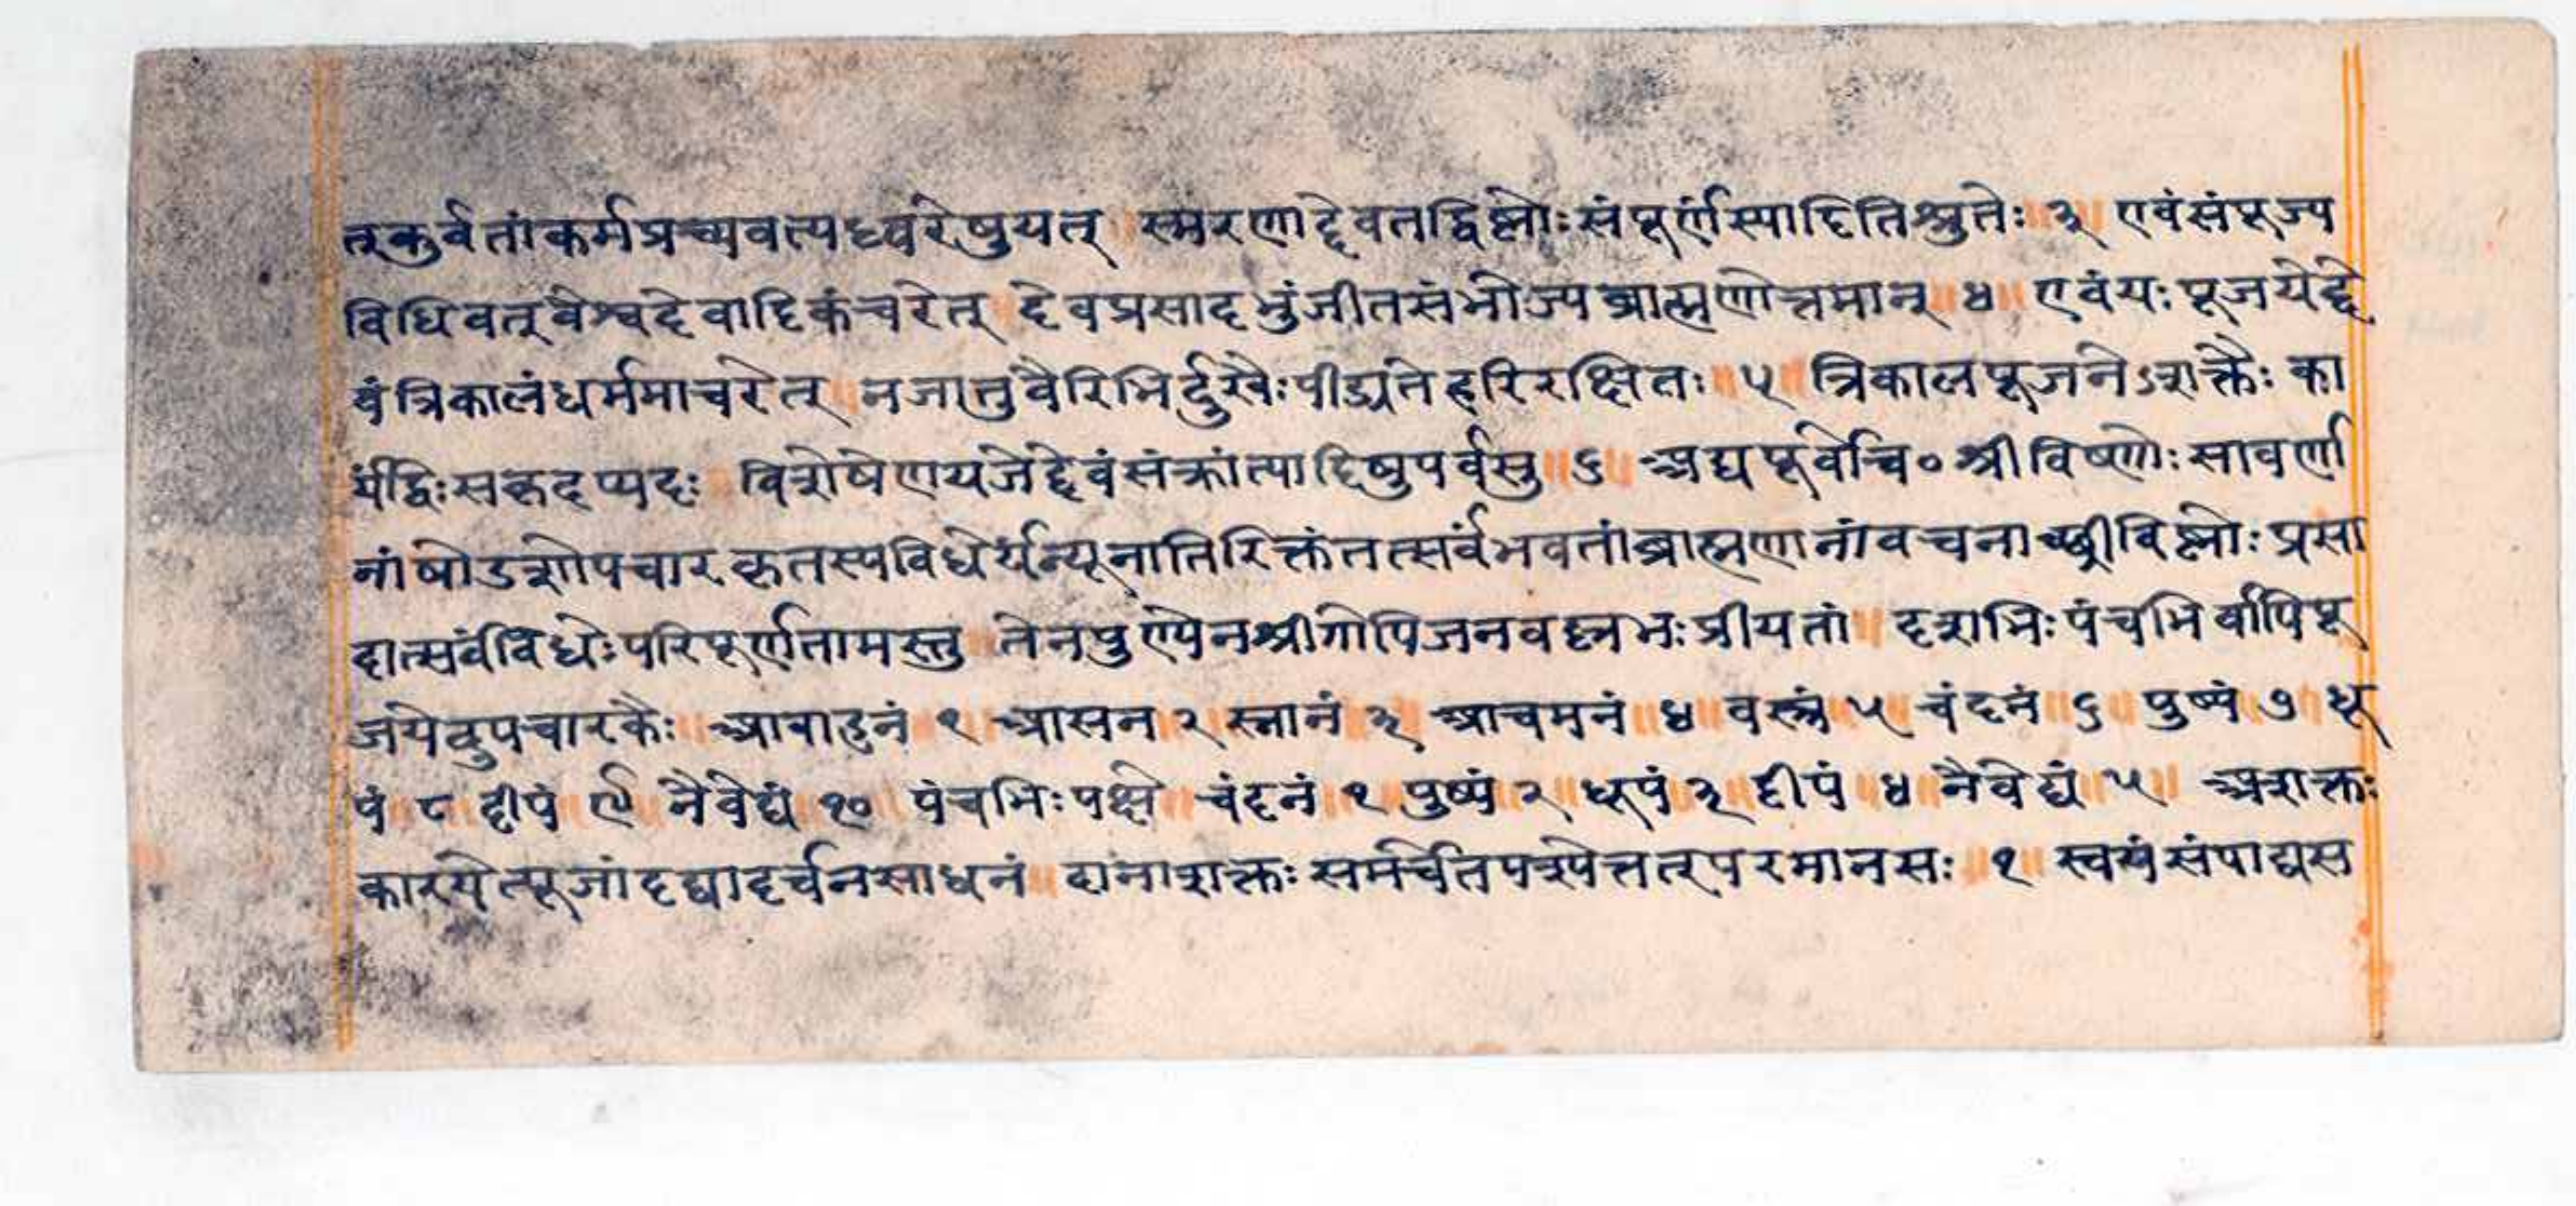 त्कुर्वतांकर्मप्रच्यवत्यध्वरेषुयत् ॥ स्मरणाद्देवतद्विष्णोःसंपूर्णंस्यादितिश्रुतेः ॥ ३ ॥ एवंसंपूज्य
विधिवत्वैश्वदेवादिकंचरेत् ॥ देवप्रसादभुंजीतसंभोज्यब्राह्मणोत्तमान् ॥ ४ ॥ एवंयःपूजयेद्दे
वंत्रिकालंधर्ममाचरेत् ॥ नजातुवैरिभिर्दुखैःपीड्यतेहरिरक्षितः ॥ ५ ॥ त्रिकालपूजनेऽशक्तैः का
र्यंद्विःसकृदप्यदः ॥ विशेषेणयजेद्देवंसंक्रांत्यादिषुपर्वसु ॥ ६ ॥ अद्यपूर्वोच्चि० श्रीविष्णोःसावर्णा
नांषोडशोपचारकृतस्यविधेर्यन्न्यूनातिरिक्तंतत्सर्वंभवतांब्राह्मणानांवचनाच्छ्रीविष्णोःप्रसा
दात्सर्वंविधेःपरिपूर्णतामस्तु ॥ तेनपुण्येनश्रीगोपिजनवल्लभःप्रीयतां ॥ दशभिःपंचभिर्वापिपू
जयेदुपचारकैः ॥ आवाहनं ॥ १ ॥ आसन ॥ २ ॥ स्नानं ॥ ३ ॥ आचमनं ॥ ४ ॥ वस्त्रं ॥ ५ ॥ चंदनं ॥ ६ ॥ पुष्पं ॥ ७ ॥ धू
पं ॥ ८ ॥ दीपं ॥ ९ ॥ नैवेद्यं ॥ १० ॥ पंचभिःपक्षे ॥ चंदनं ॥ १ ॥ पुष्पं ॥ २ ॥ धूपं ॥ ३ ॥ दीपं ॥ ४ ॥ नैवेद्यं ॥ ५ ॥ अशक्तः
कारयेत्पूजांदद्यादर्चनसाधनं ॥ दानाशक्तःसमर्चंतपश्येत्तत्परमानसः ॥ १ ॥ स्वयंसंपाद्यस